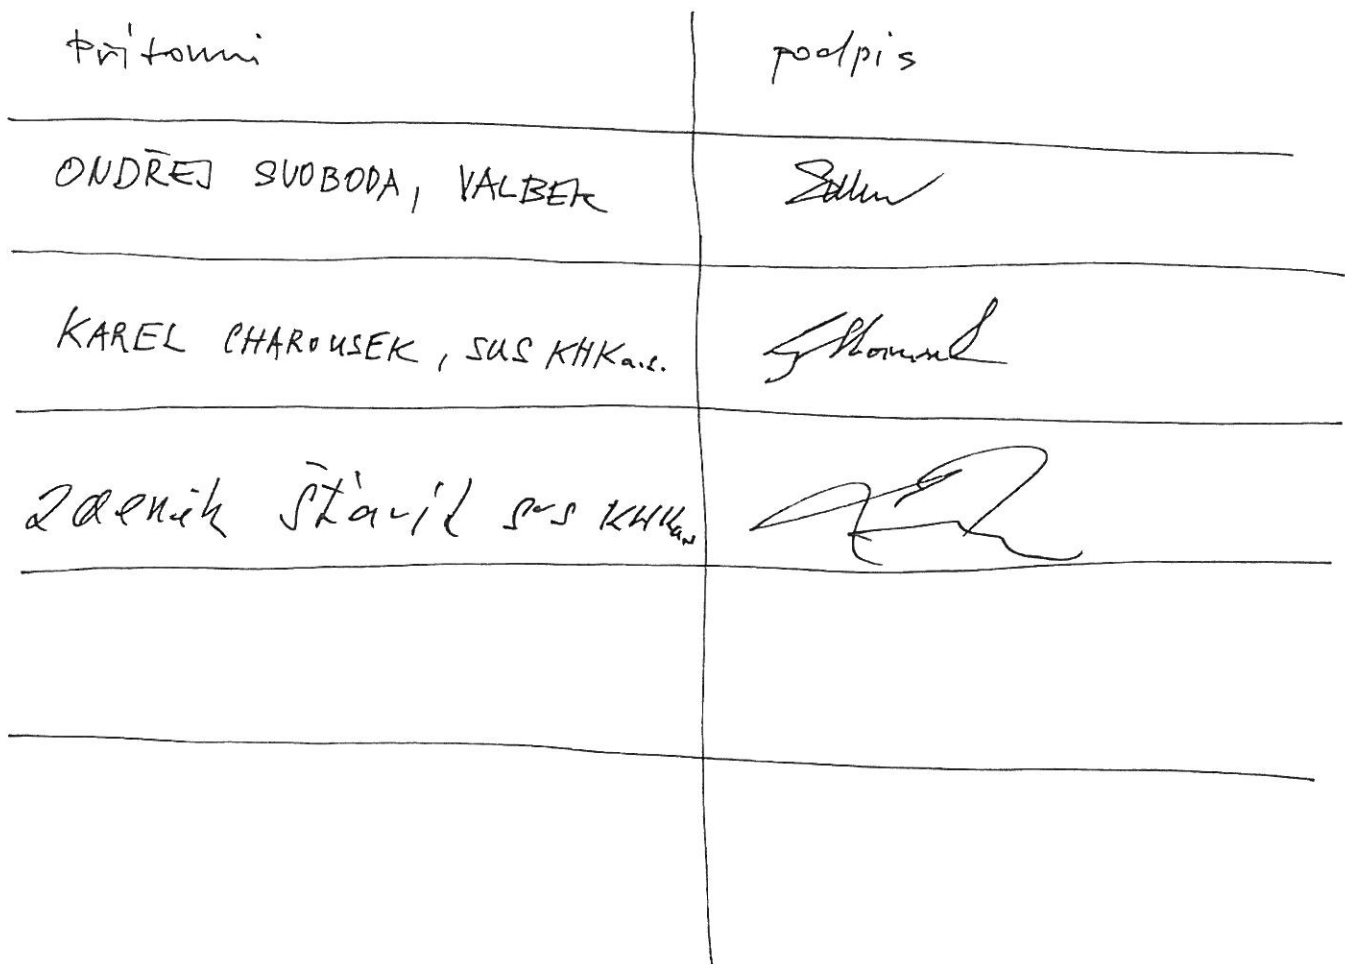 Přítomni podpis
ONDŘEJ SVOBODA, VALBEK
KAREL CHAROUSEK, SUS KHK a.s.
Zdeněk SUS KHK a.s.